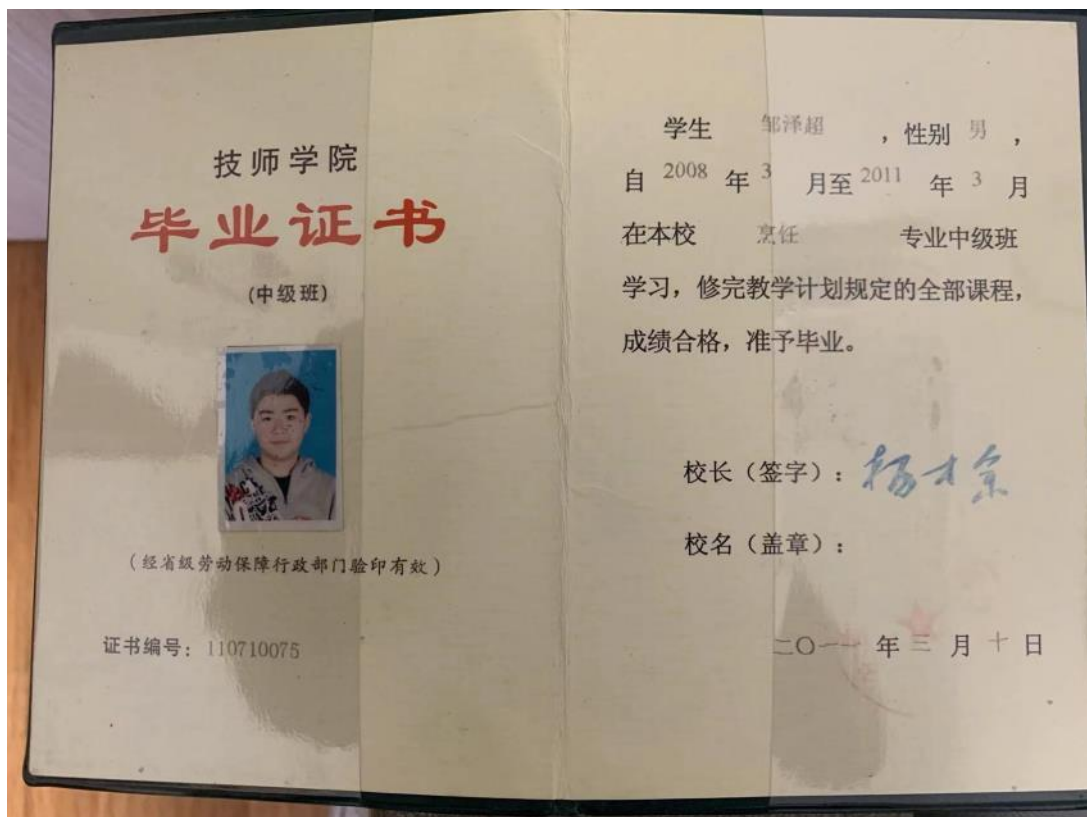 技师学院
毕业证书
(中级班)
(经省级劳动保障行政部门验印有效)
证书编号：110710075
学生 邹泽超 ，性别 男 ，
自 2008 年 3 月至 2011 年 3 月
在本校 烹任 专业中级班
学习，修完教学计划规定的全部课程，
成绩合格，准予毕业。
校长（签字）：
校名（盖章）：
二〇一一 年 三 月 十 日